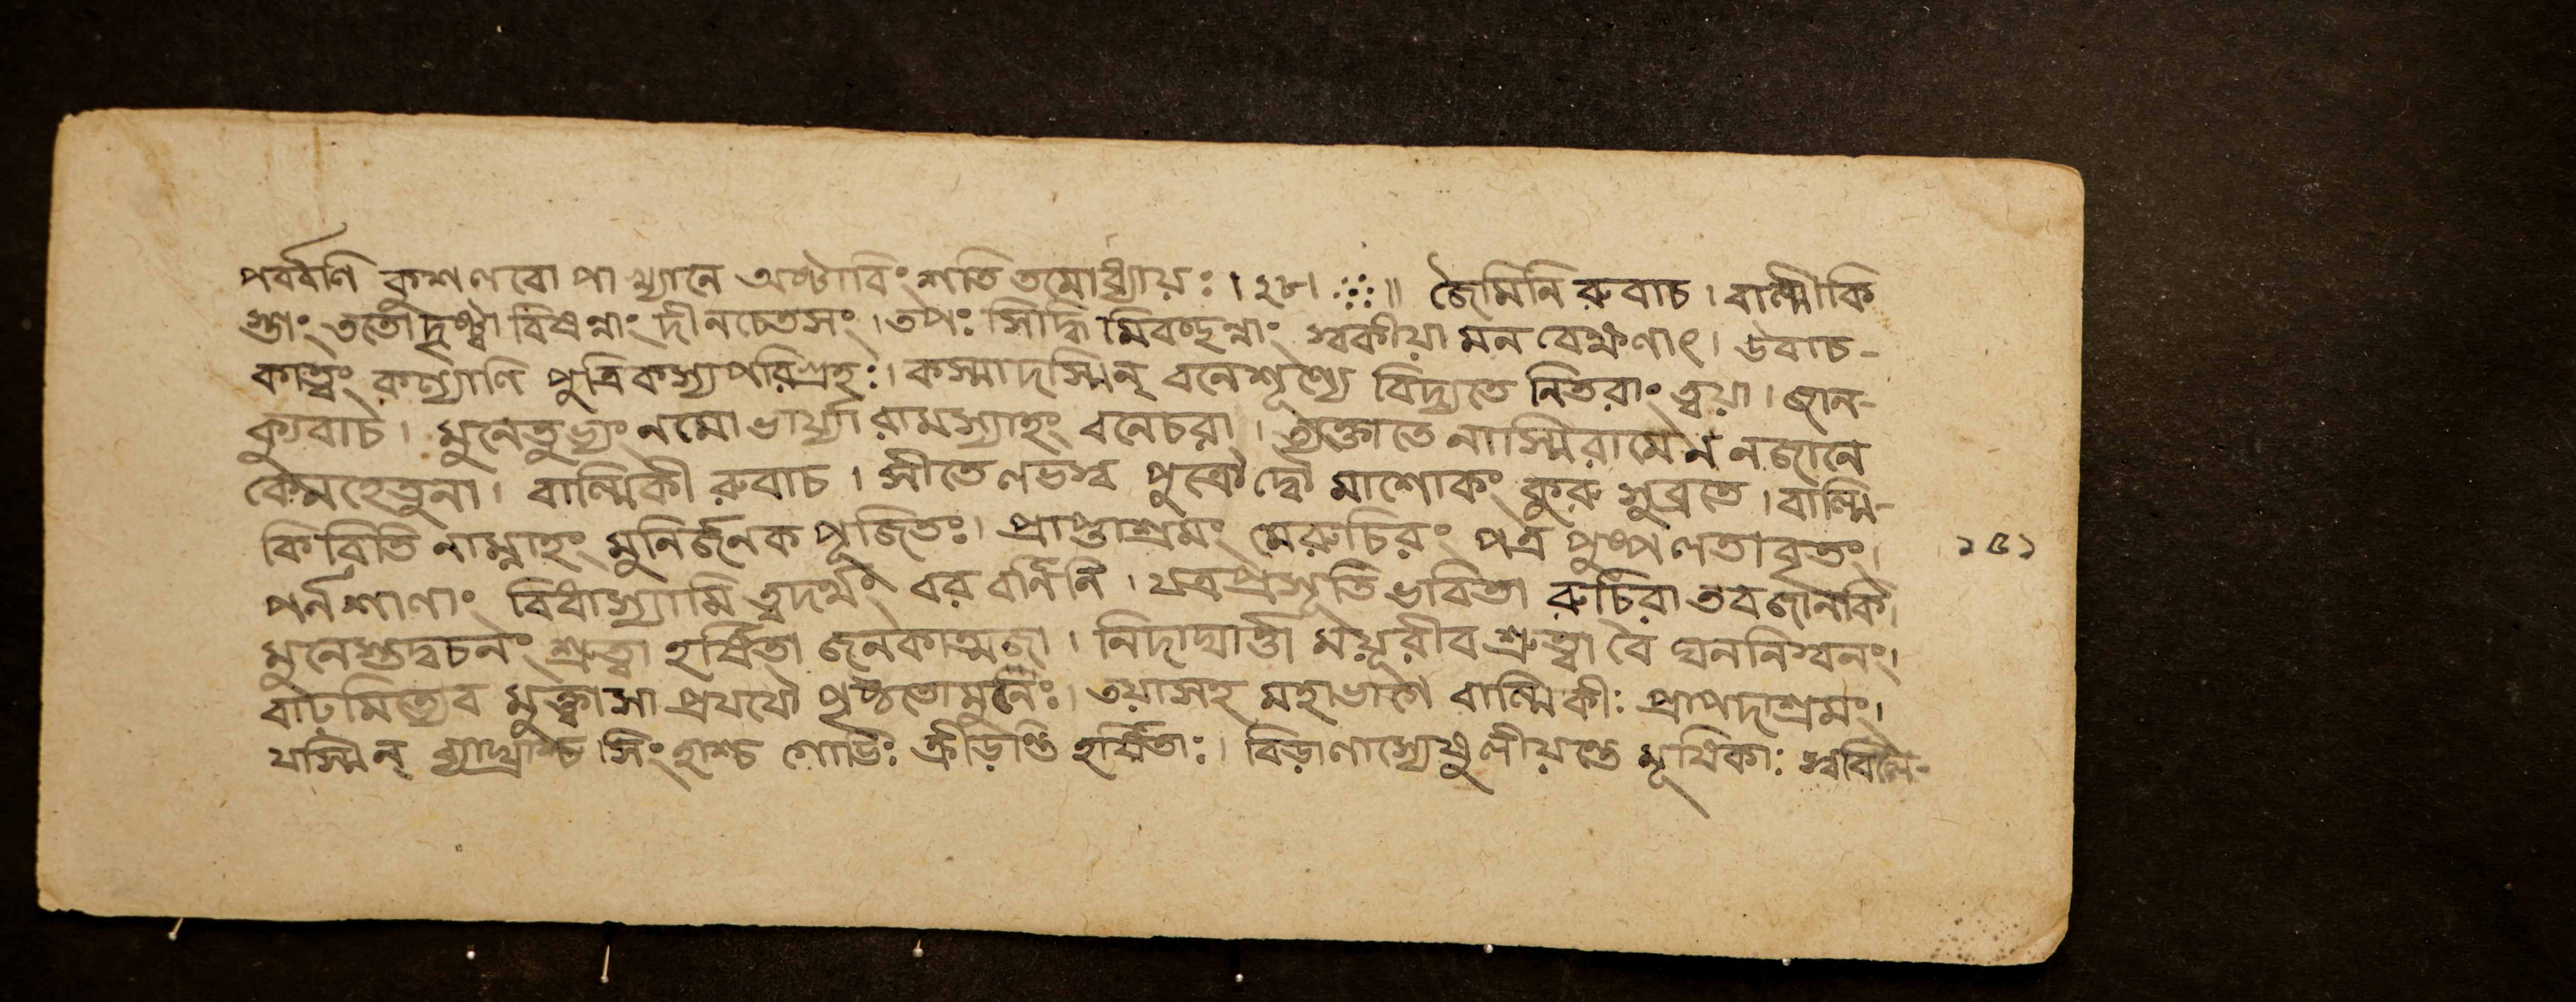 পর্ব্বণি কুশলবোপাখ্যানে অষ্টাবিংশতিতমোধ্যায়ঃ।২৮।⁘॥ জৈমিনিরুবাচ। বাল্মীকি
স্তাং ততো দৃষ্ট্বা বিষন্নাং দীনচেতসং। তপঃ সিদ্ধিমিবচ্ছন্নাং স্বকীয়ামনবেক্ষণাৎ। উবাচ-
কাত্বং কল্যাণি পুত্রি কস্য পরিগ্রহঃ। কস্মাদস্মিন্ বনেশূণ্যে বিদ্যুতে নিতরাং ত্বয়া। জান-
ক্যুবাচ। মুনেতুভ্যং নমো ভার্য্যা রামস্যাহং বনেচরা। ত্যক্তাতে নাস্মি রামেন নজানে
কেনহেতুনা। বাল্মিকীরুবাচ। সীতে লভস্ব পুত্রৌ দ্বৌ মাশোকং কুরু সুব্রতে। বাল্মি-
কিরিতি নাম্নাহং মুনির্জনক পূজিতঃ। প্রাপ্তাশ্রমং মেরুচিরং পত্র পুষ্প লতাবৃতং।
১৫১
পর্নশালাং বিধাস্যামি ত্বদর্থং বর বর্নিনি। যত্রপ্রসূতি ভাবিতা রুচিরা তব জানকি।
মুনেস্তদ্বচনং শ্রুত্বা হর্ষিতা জনকাত্মজা। নিদাঘার্ত্তা ময়ূরীব শ্রুত্বা বৈ ঘননিস্বনং।
বাটমিত্যেব মুক্ত্বাসা প্রযযৌ পৃষ্ঠতোমুনিঃ। তয়াসহ মহাভাগো বাল্মিকীঃ প্রাপদাশ্রমং।
যস্মিন্ ব্যাঘ্রাশ্চ সিংহাশ্চ গোভিঃ ক্রীড়ন্তি হর্ষিতাঃ। বিড়ালাস্যেষুলীয়ন্তে মূষিকাঃ স্ববিলে-